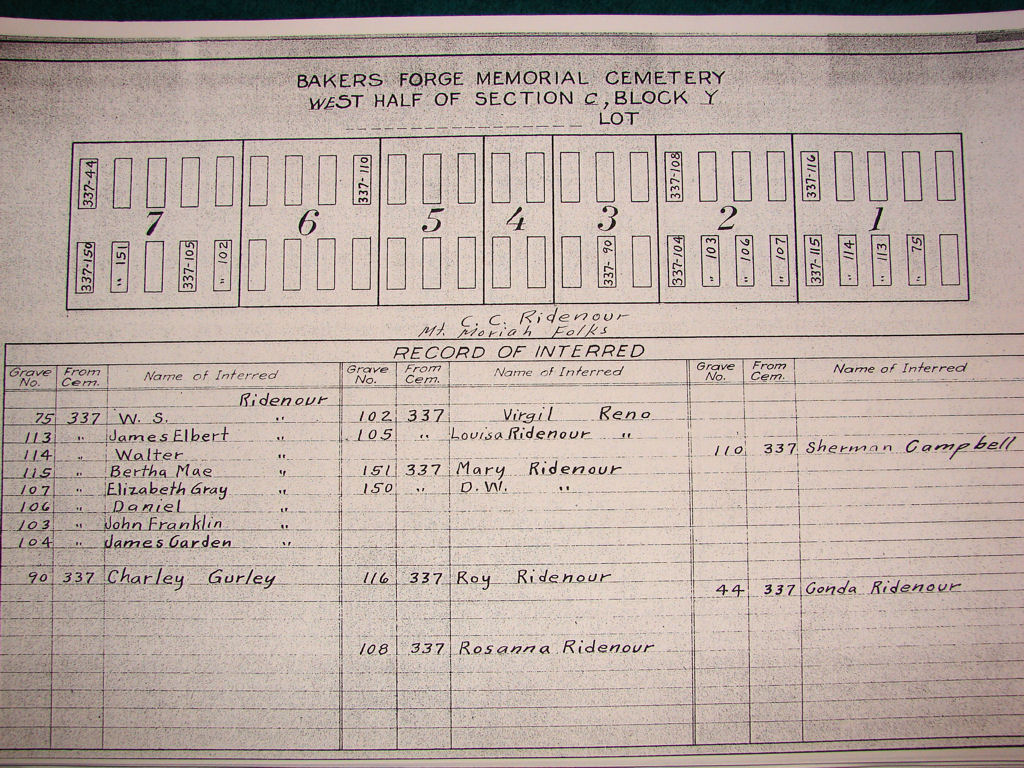 BAKERS FORGE MEMORIAL CEMETERY
WEST HALF OF SECTION C, BLOCK Y
LOT
337-44 337-110 337-108 337-116
7 6 5 4 3 2 1
337-150 " 151 337-105 " 102 337-90 337-104 " 103 " 106 " 107 337-115 " 114 " 113 " 75
C. C. Ridenour
Mt. Moriah Folks
RECORD OF INTERRED
Grave No. From Cem. Name of Interred Grave No. From Cem. Name of Interred Grave No. From Cem. Name of Interred
Ridenour
75 337 W. S. " 102 337 Virgil Reno
113 " James Elbert " 105 " Louisa Ridenour "
114 " Walter " 110 337 Sherman Campbell
115 " Bertha Mae " 151 337 Mary Ridenour
107 " Elizabeth Gray " 150 " D. W. "
106 " Daniel "
103 " John Franklin "
104 " James Carden "
90 337 Charley Gurley 116 337 Roy Ridenour
44 337 Conda Ridenour
108 337 Rosanna Ridenour